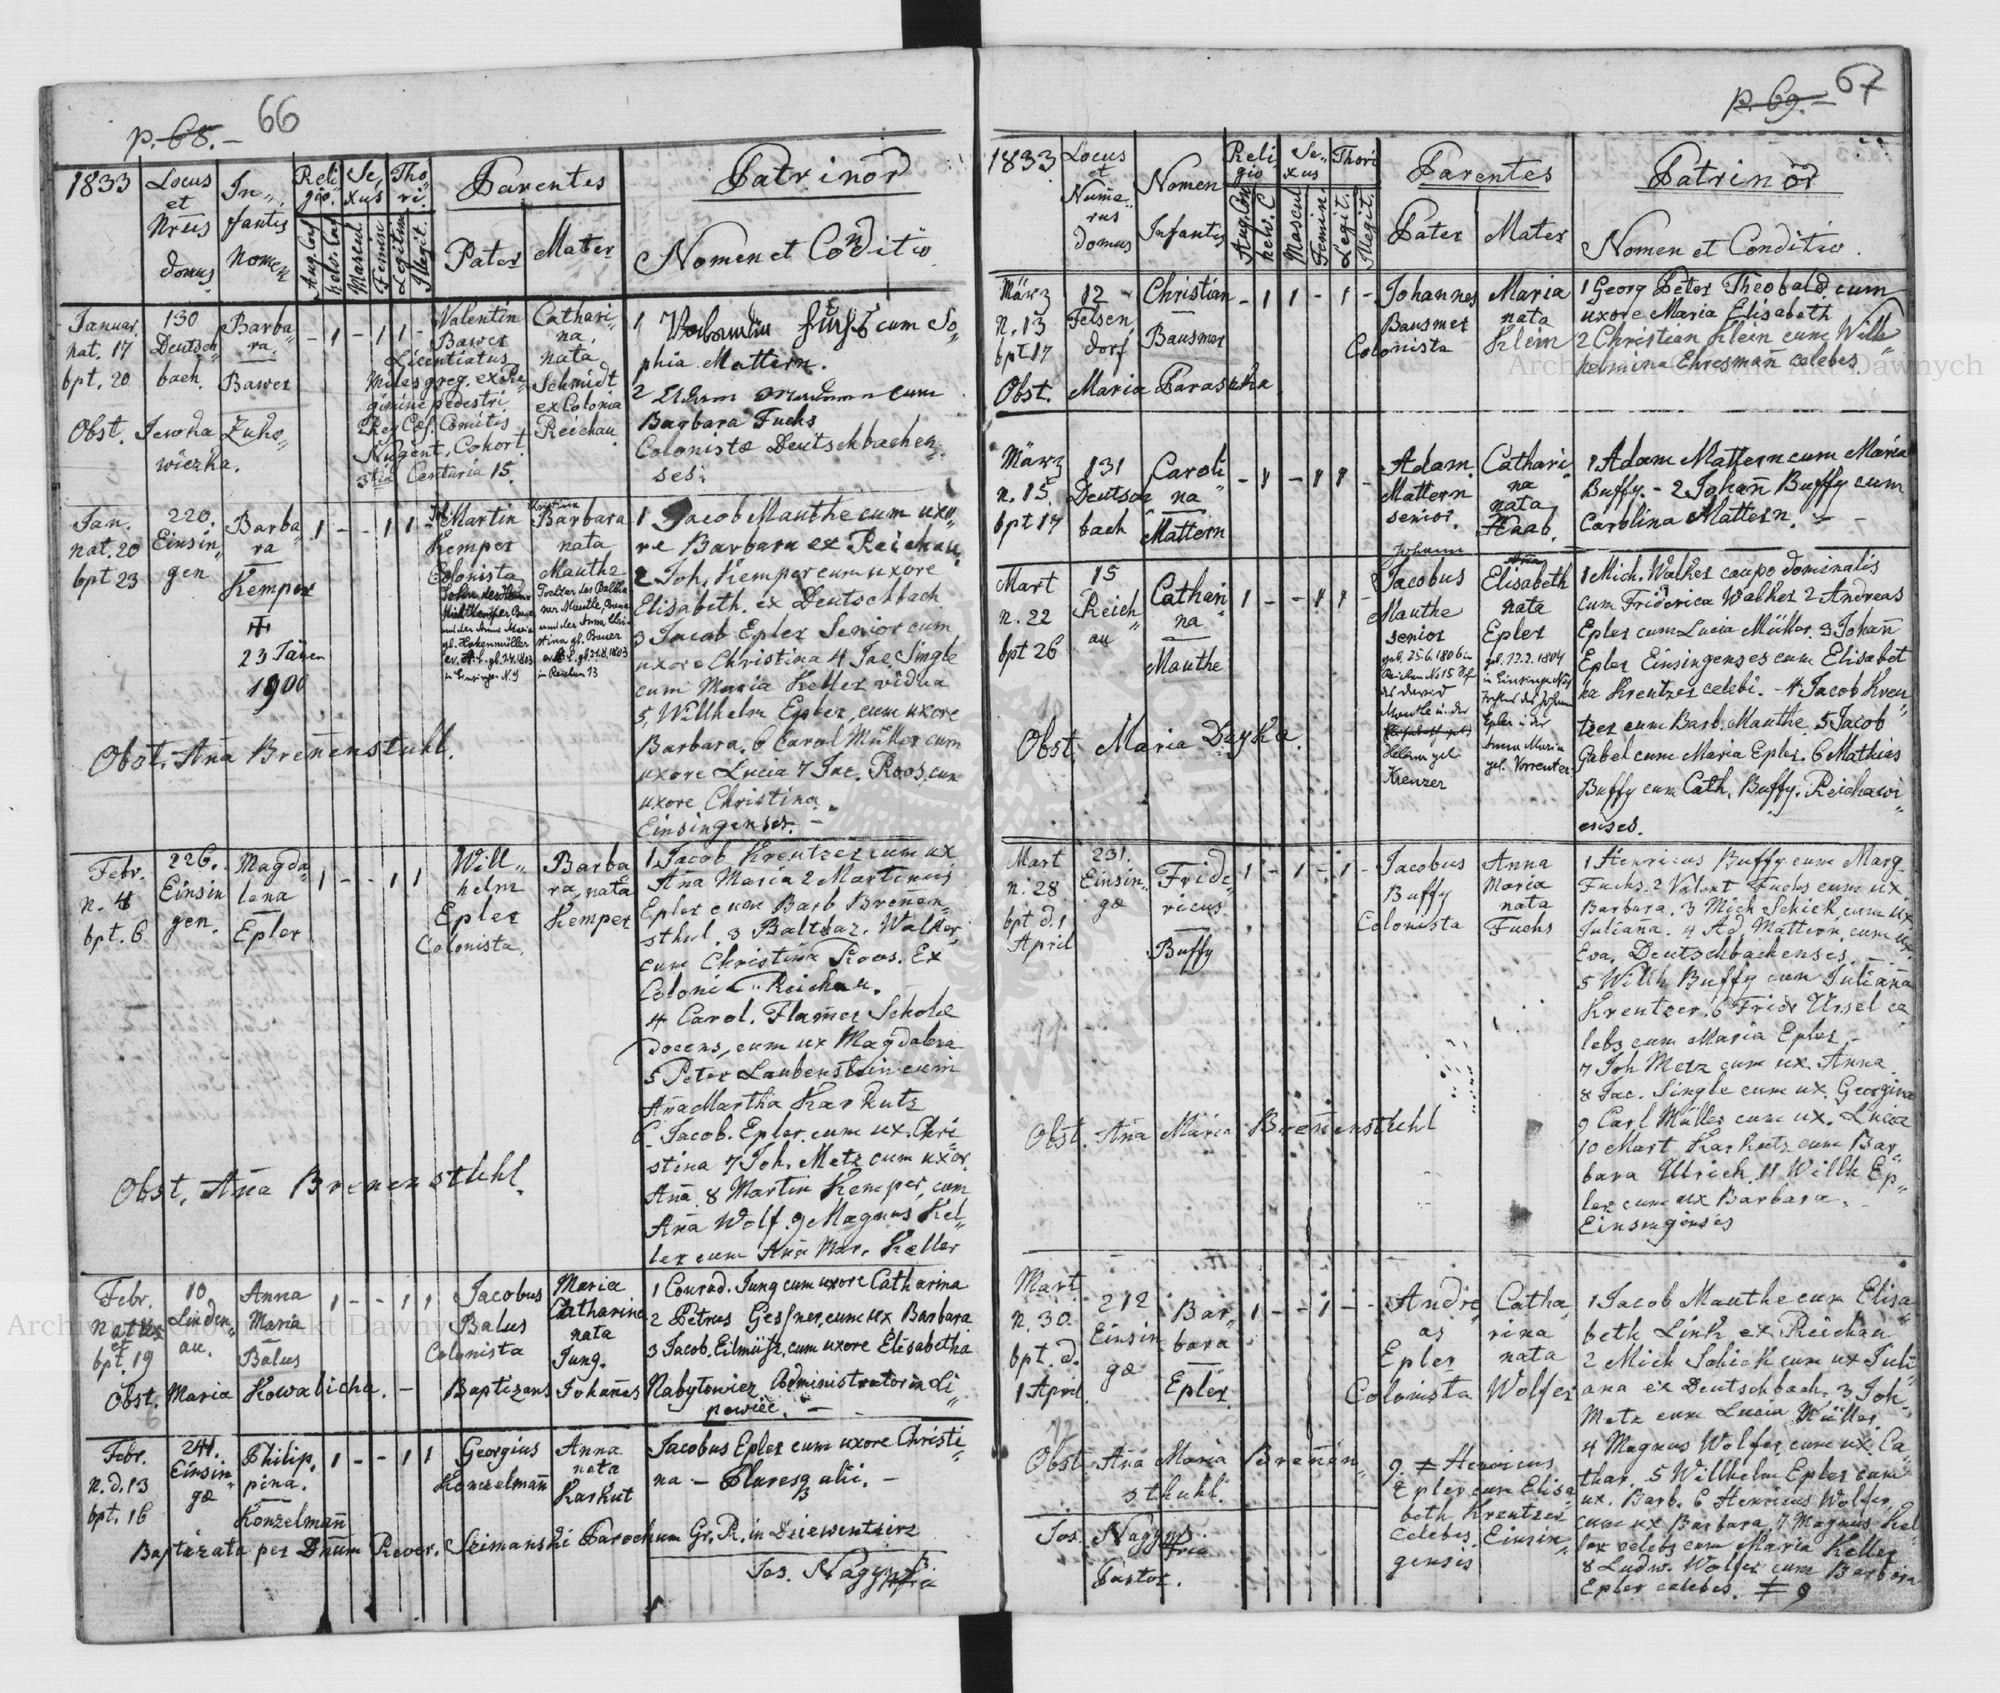 p. 68. -
66
1833
Locus et Nrus domus
Infantis Nomen
Religio.
Sexus
Thori.
Parentes
Patrinor
Aug. Conf
helv. Conf
Mascul.
Femin
Legitim
Illegit.
Pater
Mater
Nomen et Conditio
Januar.
nat. 17
bpt. 20
130
Deutsch„
bach.
Barba„
ra.
Bawer
- 1 - 1 1 -
Valentin
Bawer
Licentiatus
Miles greg. ex Re„
gimine pedestri
Nugent, Cohort.
3tia Centuria 15.
Cathari„
na,
nata
Schmidt
ex Colonia
Reichau.
1 cum So„
phia Mattern.
2 cum
Bagbara Fuchs
Colonistæ Deutschbachen„
ses.
Obst. Jewka Zuko„
wiczka.
Jan.
nat. 20
bpt 23
220.
Einsin„
gen
Barba„
ra
Kemper
23 Jäner
1900
1 - - 1 1 -
Martin
Kemper
Colonista
Christina
Barbara
nata
Mauthe
Tochter des Baltha
in Reichau 13
1 Jacob Mauthe cum uxo„
re Barbara ex Reichau.
2 Joh. Kemper cum uxore
Elisabeth. ex Deutschbach
3 Jacob Epler Senior cum
uxore Christina 4 Jac. Single
cum Maria Keller vidua
5. Willhelm Epler, cum uxore
Barbara. 6 Carol Müller cum
uxore Lucia 7 Jac. Roos, cum
uxore Christina.
Einsingenses. -
Obst. Aña Breñenstuhl.
Febr.
n. 4
bpt. 6
226.
Einsin
gen.
Magda„
lena
Epler
1 - - 1 1
Will„
helm
Epler
Colonista.
Barba
ra, nata
Kemper
1 Jacob Kreutzer cum ux.
Aña Maria 2 Martinus
Epler cum Barb Breñen„
sthul. 3 Baltbaz. Walker,
cum Christina Roos. Ex
Coloni Reichau.
4 Carol. Flamer Scholæ
Docens, cum ux Magdalena
5 Peter Laubenstein cum
Aña Martha Karkutz
6. Jacob. Epler cum ux. Chri
stina 7 Joh. Metz cum uxor.
Aña 8 Martin Kemper, cum
Aña Wolf 9 Magnus Kel„
ler cum Aña Mar. Kæller
Obst. Aña Brenenstuhl.
Febr.
natus
et
bpt. 19
10
Linden„
au.
Anna
Maria
Balus
1 - - 1 1
Jacobus
Balus
Colonista
Maria
Catharina
nata
Jung.
1 Conrad. Jung cum uxore Catharina
2 Petrus Gesner, cum ux Barbara
3 Jacob. Eilmüss, cum uxore Elisabetha
Obst. Maria Kowalicha. - Baptizans Johañes Nabytowicz Administrator in Li„
powiec. -
Febr.
n. d. 13
bpt. 16
241.
Einsin„
gæ
Philip„
pina.
Konzelmañ
1 - - 1 1
Georgius
Konzelmañ
Anna
nata
Karkut
Jacobus Epler cum uxore Christi„
na - Pluresq alii. -
Baptizata per Dnum Rever. Szimanski Parochum Gr. R. in Dziewentzirz
Jos. Nagy
p. 69. -
67
1833.
Locus et Numerus domus
Nomen Infantis
Religio
Sexus
Thori
Parentes
Patrinor
Aug. Conf
helv. C
Mascul
Femin.
Legit.
Illegit.
Pater
Mater
Nomen et Conditio.
März
n. 13
bpt 17
12 -
Felsen„
dorf
Christian
Bausmer
- 1 1 - 1 -
Johannes
Bausmer
Colonista
Maria
nata
Klein
1 Georg Peter Theobald cum
uxore Maria Elisabeth
2 Christian Klein cum Wilh„
helmina Ehresmañ celebes.
Obst. Maria Paraszka
März
n. 15.
bpt 17
131
Deutsch
bach
Caroli„
na
Mattern
- 1 - 1 1 -
Adam
Mattern
senior.
Cathari„
na
nata
Haab.
1 Adam Mattern cum Maria
Buffy. - 2 Johañ Buffy cum
Carolina Mattern. -
Mart
n. 22
bpt 26
15
Reich„
au
Cathari„
na
Mauthe
1 - - 1 1 -
Johann
Jacobus
Mauthe
senior
geb. 25.6.1806 in
Reichau N. 15
des David
Mauthe u. der
Helena geb.
Kreuzer
Aña
Elisabeth
nata
Epler
geb. 12.2.1804
in Einsingen
Tochter des Johann
Epler u. der
Anna Maria
geb. Vorreuter
1 Mich. Walker caupo dominalis
cum Friderica Walker 2 Andreas
Epler cum Lucia Müller. 3 Johañ
Epler Einsingenses cum Elisabet
ha Kreutzer celebi. - 4 Jacob Kreu„
tzer cum Barb. Mauthe. 5 Jacob
Gabel cum Maria Epler. 6 Mathias
Buffy cum Cath. Buffy. Reichawi„
enses.
Obst. Maria Dayka.
Mart
n. 28
bpt d. 1
April
231.
Einsin„
gæ
Fride„
ricus
Buffy
1 - 1 - 1 -
Jacobus
Buffy
Colonista
Anna
Maria
nata
Fuchs
1 Henricus Buffy cum Marg.
Fuchs. 2 Valent Fuchs cum ux
Barbara. 3 Mich Schick, cum ux
Juliaña. 4 Ad. Mattern, cum ux.
Eva. Deutschbachenses. -
5 Willh Buffy cum Juliaña
Kreutzer. 6 Fridr Ursel ce
lebs cum Maria Epler. -
7 Joh Metz cum ux. Anna
8 Jac. Single cum ux. Georgina
9 Carl Müller cum ux. Lucia
10 Mart Karkutz cum Bar„
bara Ulrich. 11 Willh Ep„
ler cum ux Barbara. -
Einsingenses
Obst. Aña Maria Breñenstuhl
Mart
n. 30.
bpt. d.
1 April.
212
Einsin
gæ
Bar„
bara
Epler
1 - - 1 - -
Andre
as
Epler
Colonista
Catha
rina
nata
Wolfer
1 Jacob Mauthe cum Elisa„
beth Link ex Reichau
2 Mich Schick cum ux Juli„
ana ex Deutschbach. 3 Joh.
Metz cum Lucia Müller
4 Magnus Wolfer, cum ux. Ca„
thar. 5 Willhelm Epler cum
ux. Barb. 6 Henricus Wolfer,
cum ux Barbara 7 Magnus Kel„
ler celebs cum Maria Keller
8 Ludw. Wolfer cum Barbara
Epler celebes. ≠ 9
Obst. Aña Maria Breñen„
stkuhl.
9. ≠ Henricus
Epler cum Elisa„
beth Kreutzer
celebes, Einsin„
gensis
Jos. Nagy
Pastor.